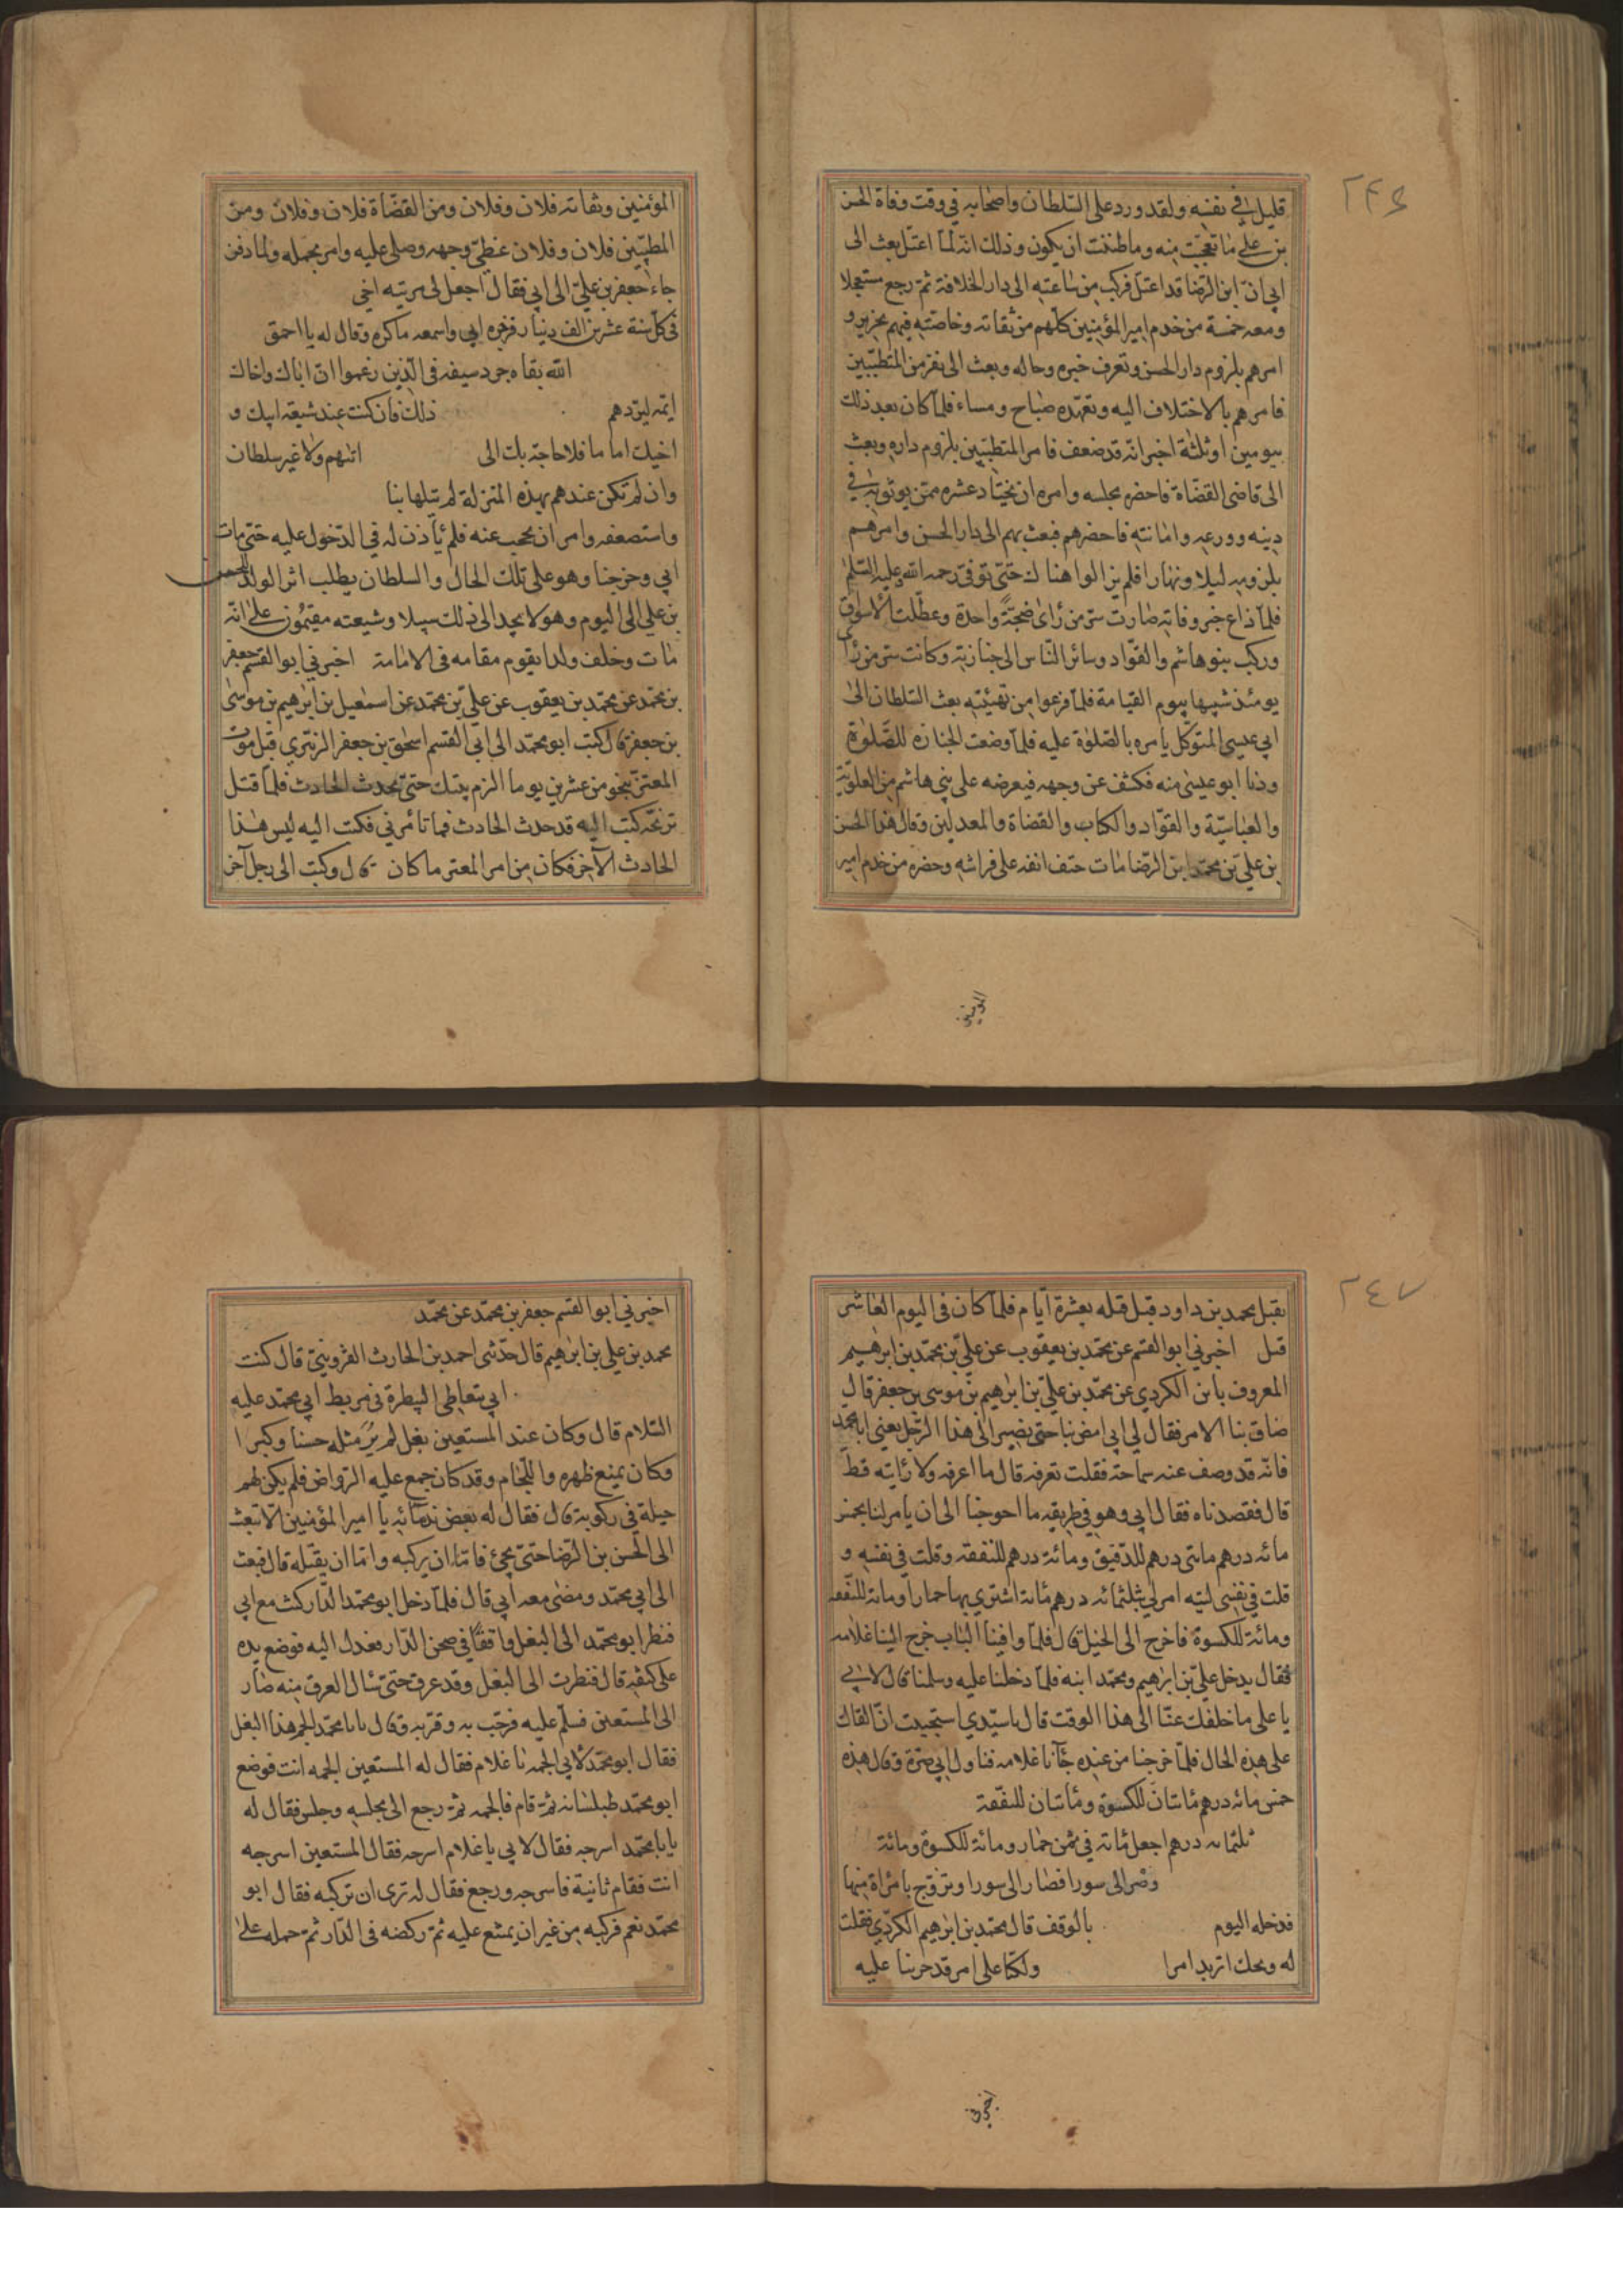 ٢٤٦
قليل في نفسه ولقد ورد على السّلطان واصحابه في وقت وفاة الحسن
بن علي ما تعجّبت منه وما ظننت ان يكون وذلك انّه لمّا اعتلّ بعث الى
ابي انّ ابن الرّضا قد اعتلّ فركب من ساعته الى دار الخلافة ثمّ رجع مستعجلا
ومعه خمسة من خدم امير المؤمنين كلّهم من ثقاته وخاصّته فيهم نحرير و
امرهم بلزوم دار الحسن وتعرف خبره وحاله وبعث الى نفر من المتطبّبين
فامرهم بالاختلاف اليه وتعهّده صباح ومساء فلمّا كان بعد ذلك
بيومين او ثلثة اخبر انّه قد ضعف فامر المتطبّبين بلزوم داره وبعث
الى قاضي القضاة فاحضره مجلسه وامره ان يختار عشره ممّن يوثق به في
دينه وورعه وامانته فاحضرهم فبعث بهم الى دار الحسن وامرهم
بلزومه ليلا ونهارا فلم يزالوا هناك حتّى توفّي رحمه اللّه وعليه السّلم
فلمّا ذاع خبر وفاته صارت سرّ من رأى ضجّةً واحدة وعطّلت الاسواق
وركب بنو هاشم والقوّاد وسائر النّاس الى جنازته وكانت سرّ من رأى
يومئذ شبيها بيوم القيامة فلمّا فرغوا من تهيئته بعث السّلطان الى
ابي عيسى المتوكّل يامره بالصّلوة عليه فلمّا وضعت الجنازه للصّلوة
ودنا ابو عيسى منه فكشف عن وجهه فيعرضه على بني هاشم من العلويّة
والعبّاسيّة والقوّاد والكتاب والقضاة والمعدلين وقال هذا الحسن
بن علي بن محمّد ابن الرّضا مات حتف انفه على فراشه وحضره من خدم امير
المؤمنين
المؤمنين وثقاته فلان وفلان ومن القضّاة فلان وفلان ومن
المطبّبين فلان وفلان غطّي وجهه وصلى عليه وامر بحمله ولما دفن
جاء جعفر بن علي الى ابي فقال اجعل لي مرتبه اخي
في كلّ سنة عشرين الف دينار فزبره ابي واسمعه ما كره وقال له يا احمق
اللّه بقاه جرد سيفه في الّذين زعموا انّ اباك واخاك
ائمه ليردهم ذلك فان كنت عند شيعة ابيك و
اخيك اماما فلا حاجة بك الى اثنهم ولا غير سلطان
وان لم تكن عندهم بهذه المنزلة لم تنلها بنا
واستصعفه وامر ان يحجب عنه فلم يأذن له في الدّخول عليه حتّى مات
ابي وخرجنا وهو على تلك الحال والسلطان يطلب اثر الولد الحسن
بن علي الى اليوم وهو لا يجد الى ذلك سبيلا وشيعته مقيمون على انّه
مات وخلف ولدا يقوم مقامه في الامامة اخبرني ابو القسم جعفر
بن محمّد عن محمّد بن يعقوب عن علي بن محمّد عن اسمعيل بن ابرهيم بن موسى
بن جعفر قال كتب ابو محمّد الى ابي القسم اسحق بن جعفر الزبيري قبل موت
المعتز بنحو من عشرين يوما الزم بيتك حتّى يحدث الحادث فلمّا قتل
ترنجه كتب اليه قد حدث الحادث فما تأمرني فكتب اليه ليس هذا
الحادث الآخر فكان من امر المعتز ما كان قال وكتب الى رجل آخر
٢٤٧
بقتل محمد بن داود قبل قتله بعشرة ايّام فلمّا كان في اليوم العاشر
قتل اخبرني ابو القسم عن محمّد بن يعقوب عن علي بن محمّد بن ابرهيم
المعروف بابن الكردي عن محمّد بن علي بن ابرهيم بن موسى بن جعفر قال
ضاق بنا الامر فقال لي ابي امض بنا حتى نصير الى هذا الرّجل يعني ابا محمد
فانّه قد وصف عنه سماحته فقلت تعرفه قال ما اعرفه ولا رايته قط
قال فقصدناه فقال ابي وهو في طريقه ما احوجنا الى ان يامر لنا بخمس
مائه درهم مائتي درهم للدّقيق ومائة درهم للنفقه وقلت في نفسه و
قلت في نفسي ليته امر لي بثلثمائه درهم مائة اشتري بها حمارا ومائة للنّفقه
ومائة للكسوة فاخرج الى الجبل قال فلمّا وافينا الباب خرج الينا غلامه
فقال يدخل علي بن ابرهيم ومحمّد ابنه فلمّا دخلنا عليه وسلمنا قال لابي
يا علي ما خلفك عنّا الى هذا الوقت قال يا سيّدي استحييت ان القاك
على هذه الحال فلمّا خرجنا من عنده جآنا غلامه فناول ابي صرّة وقال هذه
خمس مائه درهم مائتان للكسوة ومائتان للنفّقة
ثلثمائه درهم اجعل مائة في ثمن حمار ومائة للكسوة ومائة
وصر الى سورا فصار الى سورا وتزوّج بامرأة منها
فدخله اليوم بالوقف قال محمّد بن ابرهيم الكردي فقلت
له ويحك اتريد امرا ولكنّا على امر قد جرينا عليه
اخبرني
اخبرني ابو القسم جعفر بن محمّد عن محمّد
محمد بن علي بن ابرهيم قال حدّثني احمد بن الحارث القزويني قال كنت
ابي يتعاطى البيطرة في مربط ابي محمّد عليه
السّلام قال وكان عند المستعين بغل لم ير مثله حسنا وكبرا
وكان يمنع ظهره واللّجام وقد كان جمع عليه الرّواض فلم يكن لهم
حيلة في ركوبه قال فقال له بعض ندمائه يا امير المؤمنين الا تبعث
الى الحسن بن الرّضا حتّى يجئ فامّا ان يركبه وامّا ان يقتله قال فبعث
الى ابي محمّد ومضى معه ابي قال فلمّا دخل ابو محمّد الدّار كنت مع ابي
فنظر ابو محمّد الى البغل واقفًا في صحن الدّار فعدل اليه فوضع يده
على كتفه قال فنظرت الى البغل وقد عرق حتّى سال العرق منه صار
الى المستعين فسلّم عليه فرحّب به وقرّبه وقال يا با محمّد الجم هذا البغل
فقال ابو محمّد لابي الجمه يا غلام فقال له المستعين الجمه انت فوضع
ابو محمّد طيلسانه ثمّ قام فالجمه ثمّ رجع الى مجلسه وجلس فقال له
يا با محمّد اسرجه فقال لابي يا غلام اسرجه فقال المستعين اسرجه
انت فقام ثانية فاسرجه ورجع فقال له ترى ان تركبه فقال ابو
محمّد نعم فركبه من غير ان يمتنع عليه ثمّ ركضه في الدّار ثمّ حمله على